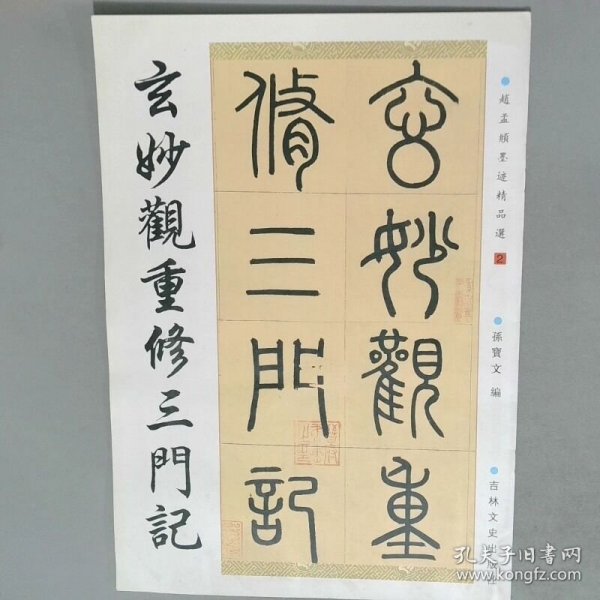 趙孟頫墨迹精品選 2
孫寶文 編
吉林文史出版社
玄妙觀重
脩三門記
玄妙觀重修三門記
孔夫子旧书网
www.kongfz.com